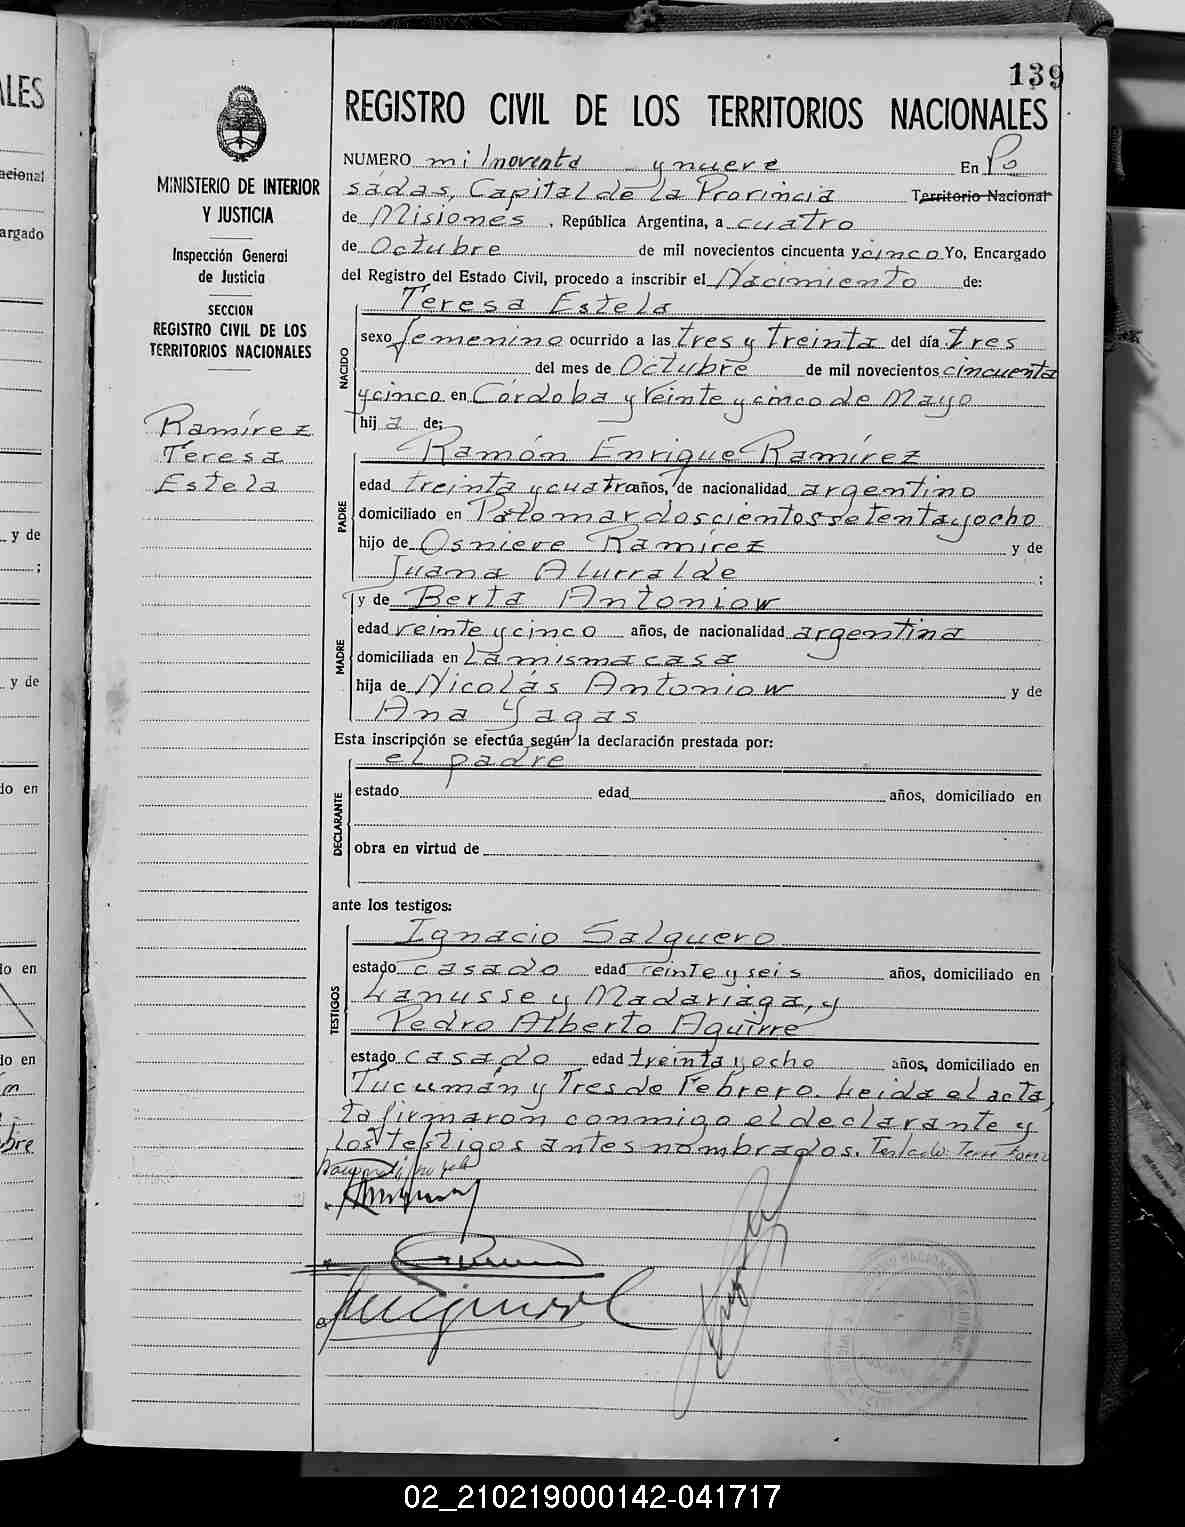 139
REGISTRO CIVIL DE LOS TERRITORIOS NACIONALES
MINISTERIO DE INTERIOR
Y JUSTICIA
Inspección General
de Justicia
SECCION
REGISTRO CIVIL DE LOS
TERRITORIOS NACIONALES
Ramírez
Teresa
Estela
NUMERO mil noventa y nueve En Po
sadas, Capital de la Provincia Territorio Nacional
de Misiones, República Argentina, a cuatro
de Octubre de mil novecientos cincuenta y cinco Yo, Encargado
del Registro del Estado Civil, procedo a inscribir el Nacimiento de:
Teresa Estela
NACIDO
sexo femenino ocurrido a las tres y treinta del día tres
del mes de Octubre de mil novecientos cincuenta
y cinco en Córdoba y Veinte y cinco de Mayo
hij a de;
Ramón Enrique Ramírez
PADRE
edad treinta y cuatro años, de nacionalidad argentino
domiciliado en Palomar doscientos setenta y ocho
hijo de Osniere Ramírez y de
Juana Alurralde ;
y de Berta Antoniow
MADRE
edad veinte y cinco años, de nacionalidad argentina
domiciliada en La misma casa
hija de Nicolás Antoniow y de
Ana Yagas
Esta inscripción se efectúa según la declaración prestada por:
el padre
DECLARANTE
estado edad años, domiciliado en
obra en virtud de
ante los testigos:
Ignacio Salguero
TESTIGOS
estado casado edad veinte y seis años, domiciliado en
Lanusse y Madariaga, y
Pedro Alberto Aguirre
estado casado edad treinta y ocho años, domiciliado en
Tucumán y Tres de Febrero. Leida el acta,
la firmaron conmigo el declarante y
los testigos antes nombrados.
ALES
acional
argado
y de
;
y de
do en
do en
do en
bre
02_210219000142-041717